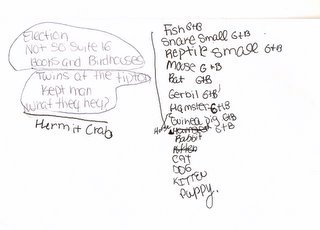 Election
Not so Suite 16
Books and Birdhouses
Twins at the tipton
kept man
what they hey?
Hermit Crab
Fish G+B
Snake Small G+B
Reptile small G+B
Mouse G+B
Rat G+B
Gerbil G+B
Hamster G+B
Guinea pig G+B
G+B
Rabbit
CAT
DOG
KITTEN
Puppy.